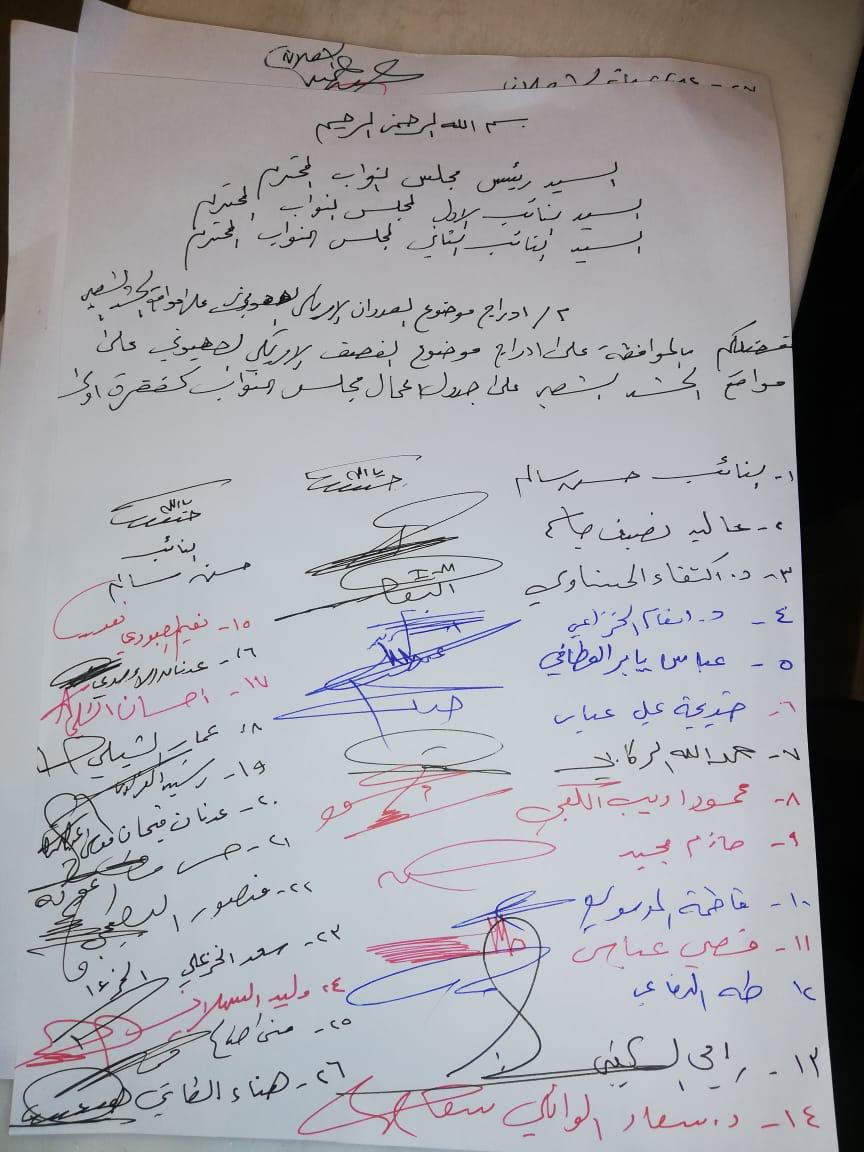 بسم الله الرحمن الرحيم
السيد رئيس مجلس النواب المحترم
السيد النائب الاول لمجلس النواب المحترم
السيد النائب الثاني لمجلس النواب المحترم
م/ ادراج موضوع العدوان الامريكي الصهيوني على مواقع الحشد الشعبي
تفضلكم بالموافقة على ادراج موضوع القصف الامريكي الصهيوني على
مواضع الحشد الشعبي على جدول اعمال مجلس النواب كفقرة اولى
١- النائب حسن سالم
٢- عالية نصيف جاسم
٣- د. اكتفاء الحسناوي
٤- د. انغام الخزاعي
٥- عباس يابر العطافي
٦- خديجة علي عباس
٧- عبدالله الركابي
٨- محمود اديب الكعبي
٩- حازم مجيد
١٠- فاطمة
١١- قصي عباس
١٢ طه الدفاعي
١٣- رامي السكيني
١٤- د. سعاد الوائلي
النائب
حسن سالم
١٥- نعيم العبودي
١٦- عدنان
١٧- احسان
١٨- عمار الشبلي
١٩- رشيد
٢٠- عدنان فيحان
٢١- حسن
٢٢- منصور البعيجي
٢٣- سعد الخزعلي
٢٤- وليد السهلاني
٢٥- منى
٢٦- هناء الطائي